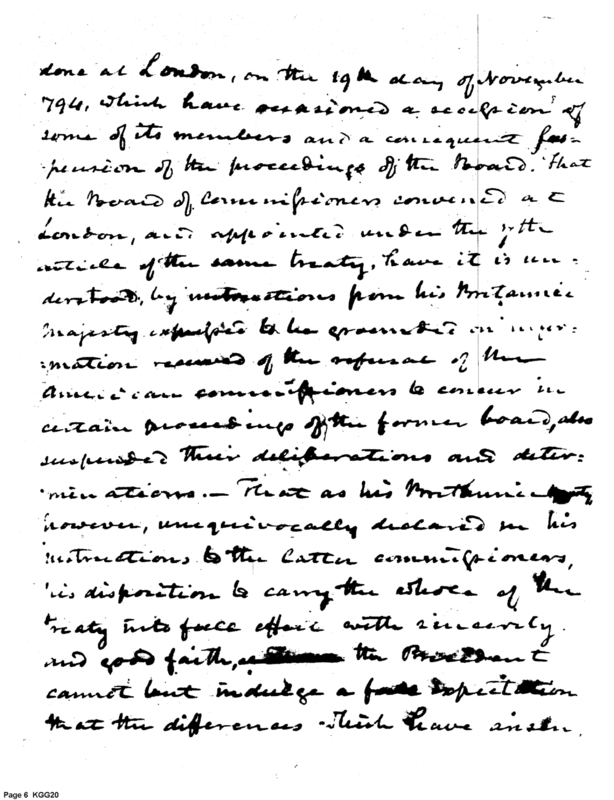 done at London, on the 19th day of November
794, which have occasioned a secession of
some of its members and a consequent sus=
pension of the proceedings of the Board. That
the Board of Commissioners convened at
London, and appointed under the 7th
article of the same treaty, have it is un=
derstood, by instructions from his Britannic
Majesty expressed to be grounded on infor=
=mation received of the refusal of the
American commissioners to concur in
certain proceedings of the former board, also
suspended their deliberations and deter=
minations.— That as his Britannic Majesty
however, unequivocally declared in his
instructions to the latter commissioners,
his disposition to carry the whole of the
treaty into full effect with sincerity
and good faith, the President
cannot but indulge a full expectation
that the differences which have arisen.
Page 6 KGG20